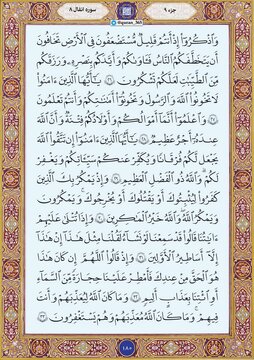 جزء ۹
@quran_365
سوره انفال ۸
وَٱذْكُرُوٓا۟ إِذْ أَنتُمْ قَلِيلٌ مُّسْتَضْعَفُونَ فِى ٱلْأَرْضِ تَخَافُونَ
أَن يَتَخَطَّفَكُمُ ٱلنَّاسُ فَـَٔاوَىٰكُمْ وَأَيَّدَكُم بِنَصْرِهِۦ وَرَزَقَكُم
مِّنَ ٱلطَّيِّبَـٰتِ لَعَلَّكُمْ تَشْكُرُونَ ٢٦ يَـٰٓأَيُّهَا ٱلَّذِينَ ءَامَنُوا۟
لَا تَخُونُوا۟ ٱللَّهَ وَٱلرَّسُولَ وَتَخُونُوٓا۟ أَمَـٰنَـٰتِكُمْ وَأَنتُمْ تَعْلَمُونَ
٢٧ وَٱعْلَمُوٓا۟ أَنَّمَآ أَمْوَٰلُكُمْ وَأَوْلَـٰدُكُمْ فِتْنَةٌ وَأَنَّ ٱللَّهَ
عِندَهُۥٓ أَجْرٌ عَظِيمٌ ٢٨ يَـٰٓأَيُّهَا ٱلَّذِينَ ءَامَنُوٓا۟ إِن تَتَّقُوا۟ ٱللَّهَ
يَجْعَل لَّكُمْ فُرْقَانًا وَيُكَفِّرْ عَنكُمْ سَيِّـَٔاتِكُمْ وَيَغْفِرْ
لَكُمْ وَٱللَّهُ ذُو ٱلْفَضْلِ ٱلْعَظِيمِ ٢٩ وَإِذْ يَمْكُرُ بِكَ ٱلَّذِينَ
كَفَرُوا۟ لِيُثْبِتُوكَ أَوْ يَقْتُلُوكَ أَوْ يُخْرِجُوكَ وَيَمْكُرُونَ
وَيَمْكُرُ ٱللَّهُ وَٱللَّهُ خَيْرُ ٱلْمَـٰكِرِينَ ٣٠ وَإِذَا تُتْلَىٰ عَلَيْهِمْ
ءَايَـٰتُنَا قَالُوا۟ قَدْ سَمِعْنَا لَوْ نَشَآءُ لَقُلْنَا مِثْلَ هَـٰذَآ إِنْ هَـٰذَآ
إِلَّآ أَسَـٰطِيرُ ٱلْأَوَّلِينَ ٣١ وَإِذْ قَالُوا۟ ٱللَّهُمَّ إِن كَانَ هَـٰذَا
هُوَ ٱلْحَقَّ مِنْ عِندِكَ فَأَمْطِرْ عَلَيْنَا حِجَارَةً مِّنَ ٱلسَّمَآءِ
أَوِ ٱئْتِنَا بِعَذَابٍ أَلِيمٍ ٣٢ وَمَا كَانَ ٱللَّهُ لِيُعَذِّبَهُمْ وَأَنتَ
فِيهِمْ وَمَا كَانَ ٱللَّهُ مُعَذِّبَهُمْ وَهُمْ يَسْتَغْفِرُونَ ٣٣
١٨٠